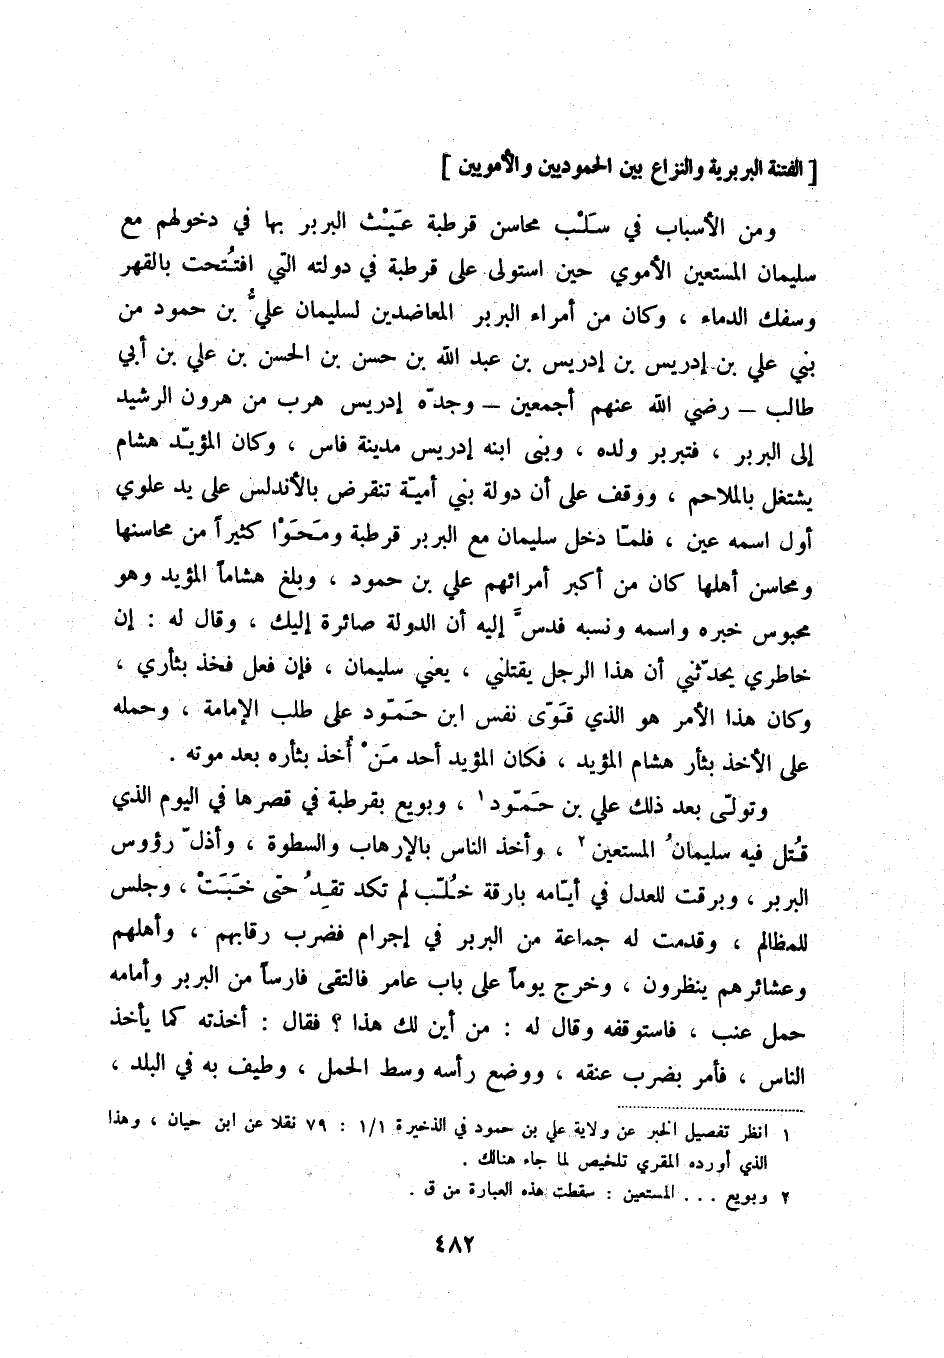 [ الفتنة البربرية والنزاع بين الحموديين والأمويين ]
ومن الأسباب في سَلْب محاسن قرطبة عَيْث البربر بها في دخولهم مع
سليمان المستعين الأموي حين استولى على قرطبة في دولته التي افتُتحت بالقهر
وسفك الدماء ، وكان من أمراء البربر المعاضدين لسليمان عليُّ بن حمود من
بني علي بن إدريس بن إدريس بن عبد الله بن حسن بن الحسن بن علي بن أبي
طالب – رضي الله عنهم أجمعين – وجدّه إدريس هرب من هرون الرشيد
إلى البربر ، فتبربر ولده ، وبنى ابنه إدريس مدينة فاس ، وكان المؤيّد هشام
يشتغل بالملاحم ، ووقف على أن دولة بني أميّة تنقرض بالأندلس على يد علوي
أول اسمه عين ، فلمّا دخل سليمان مع البربر قرطبة ومَحَوْا كثيراً من محاسنها
ومحاسن أهلها كان من أكبر أمرائهم علي بن حمود ، وبلغ هشاماً المؤيد وهو
محبوس خبره واسمه ونسبه فدسَّ إليه أن الدولة صائرة إليك ، وقال له : إن
خاطري يحدّثني أن هذا الرجل يقتلني ، يعني سليمان ، فإن فعل فخذ بثأري ،
وكان هذا الأمر هو الذي قَوّى نفس ابن حَمّود على طلب الإمامة ، وحمله
على الأخذ بثأر هشام المؤيد ، فكان المؤيد أحد مَنْ أُخذ بثأره بعد موته .
وتولّى بعد ذلك علي بن حَمّود ١ ، وبويع بقرطبة في قصرها في اليوم الذي
قُتل فيه سليمانُ المستعين ٢ ، وأخذ الناس بالإرهاب والسطوة ، وأذلّ رؤوس
البربر ، وبرقت للعدل في أيّامه بارقة خُلّب لم تكد تقِدُ حتى خَبَتْ ، وجلس
للمظالم ، وقدمت له جماعة من البربر في إجرام فضرب رقابهم ، وأهلهم
وعشائرهم ينظرون ، وخرج يوماً على باب عامر فالتقى فارساً من البربر وأمامه
حمل عنب ، فاستوقفه وقال له : من أين لك هذا ؟ فقال : أخذته كما يأخذ
الناس ، فأمر بضرب عنقه ، ووضع رأسه وسط الحمل ، وطيف به في البلد ،
١ انظر تفصيل الخبر عن ولاية علي بن حمود في الذخيرة ١/١ : ٧٩ نقلا عن ابن حيان ، وهذا
الذي أورده المقري تلخيص لما جاء هنالك .
٢ وبويع . . . المستعين : سقطت هذه العبارة من ق .
٤٨٢